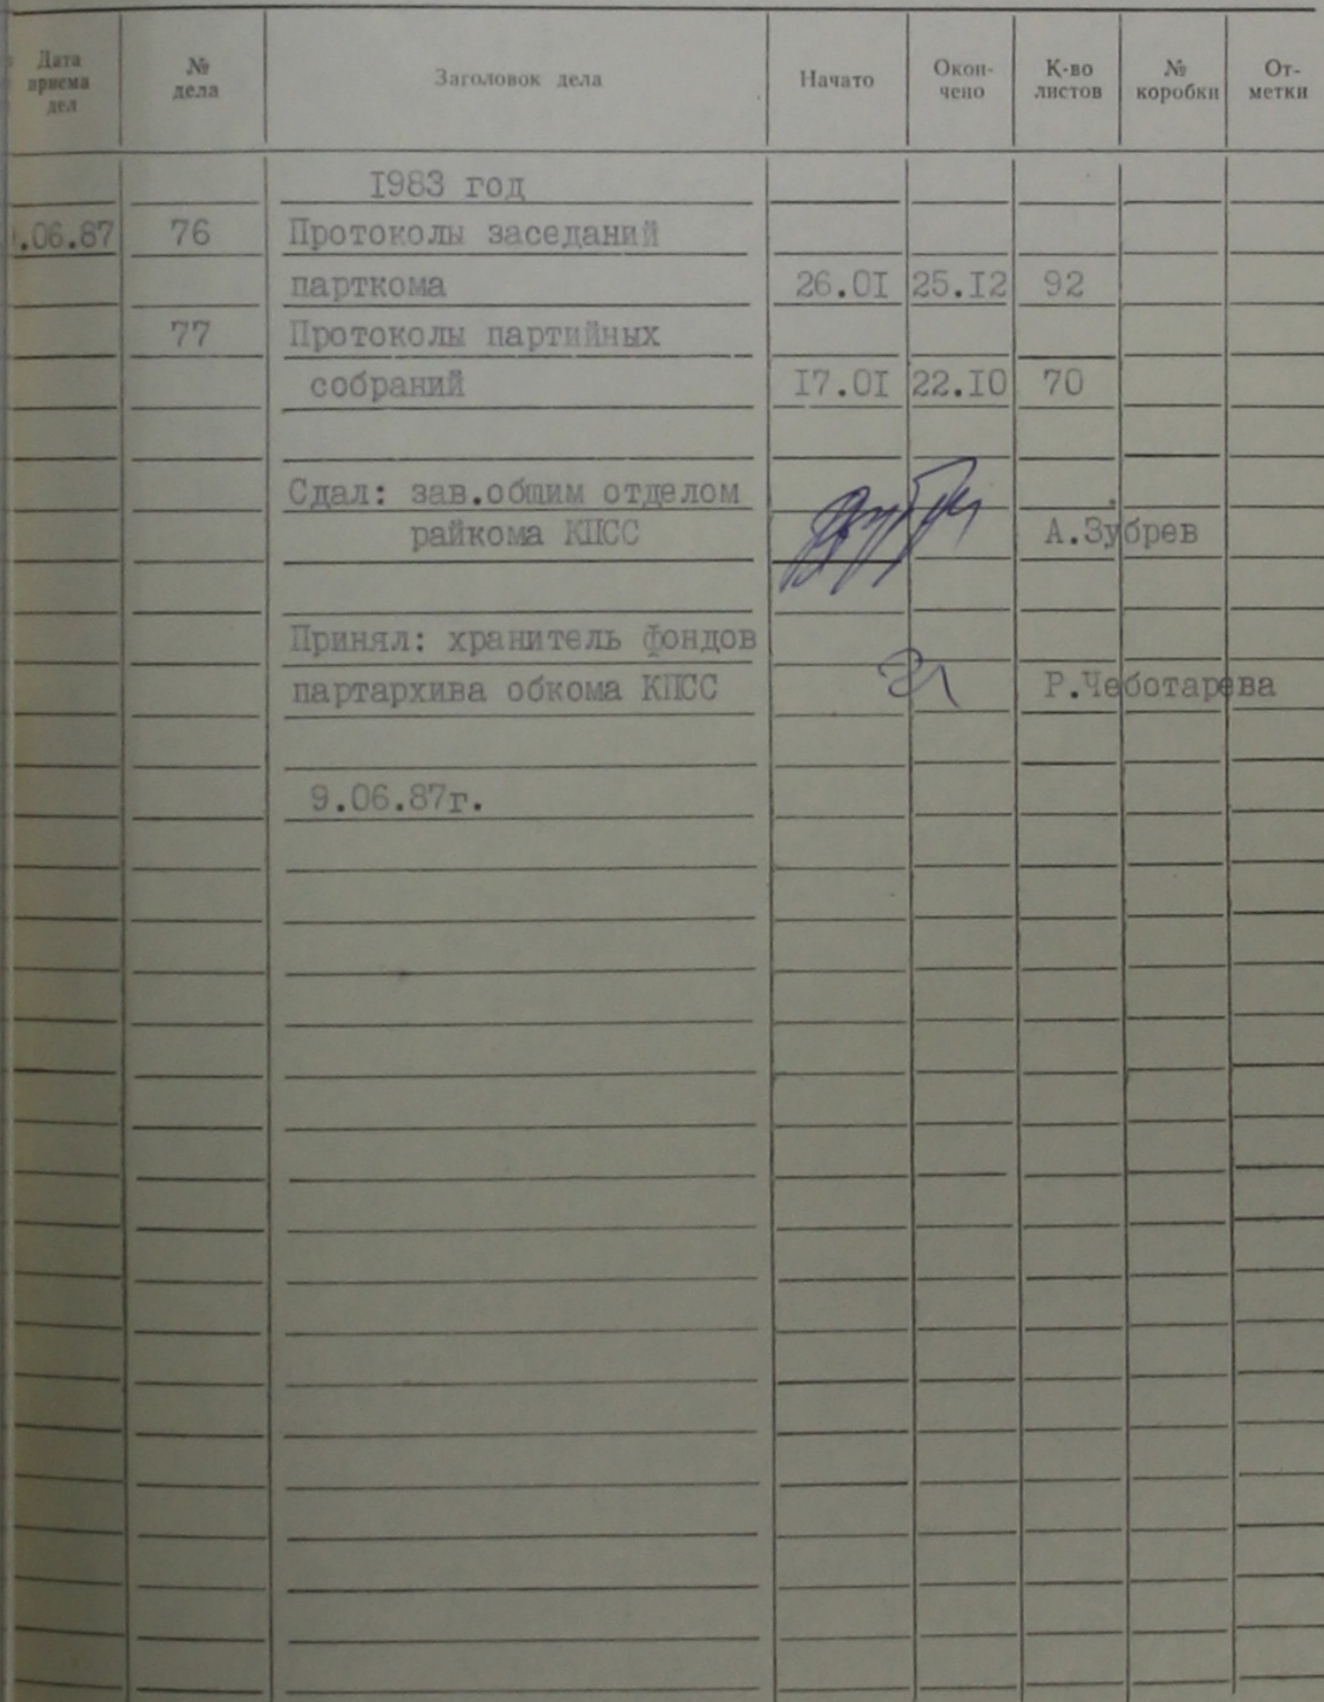 Дата приема дел № дела Заголовок дела Начато Окон- чено К-во листов № коробки От- метки
1983 год
.06.87 76 Протоколы заседаний
парткома 26.01 25.12 92
77 Протоколы партийных
собраний 17.01 22.10 70
Сдал: зав.общим отделом
райкома КПСС А.Зубрев
Принял: хранитель фондов
партархива обкома КПСС Р.Чеботарева
9.06.87г.